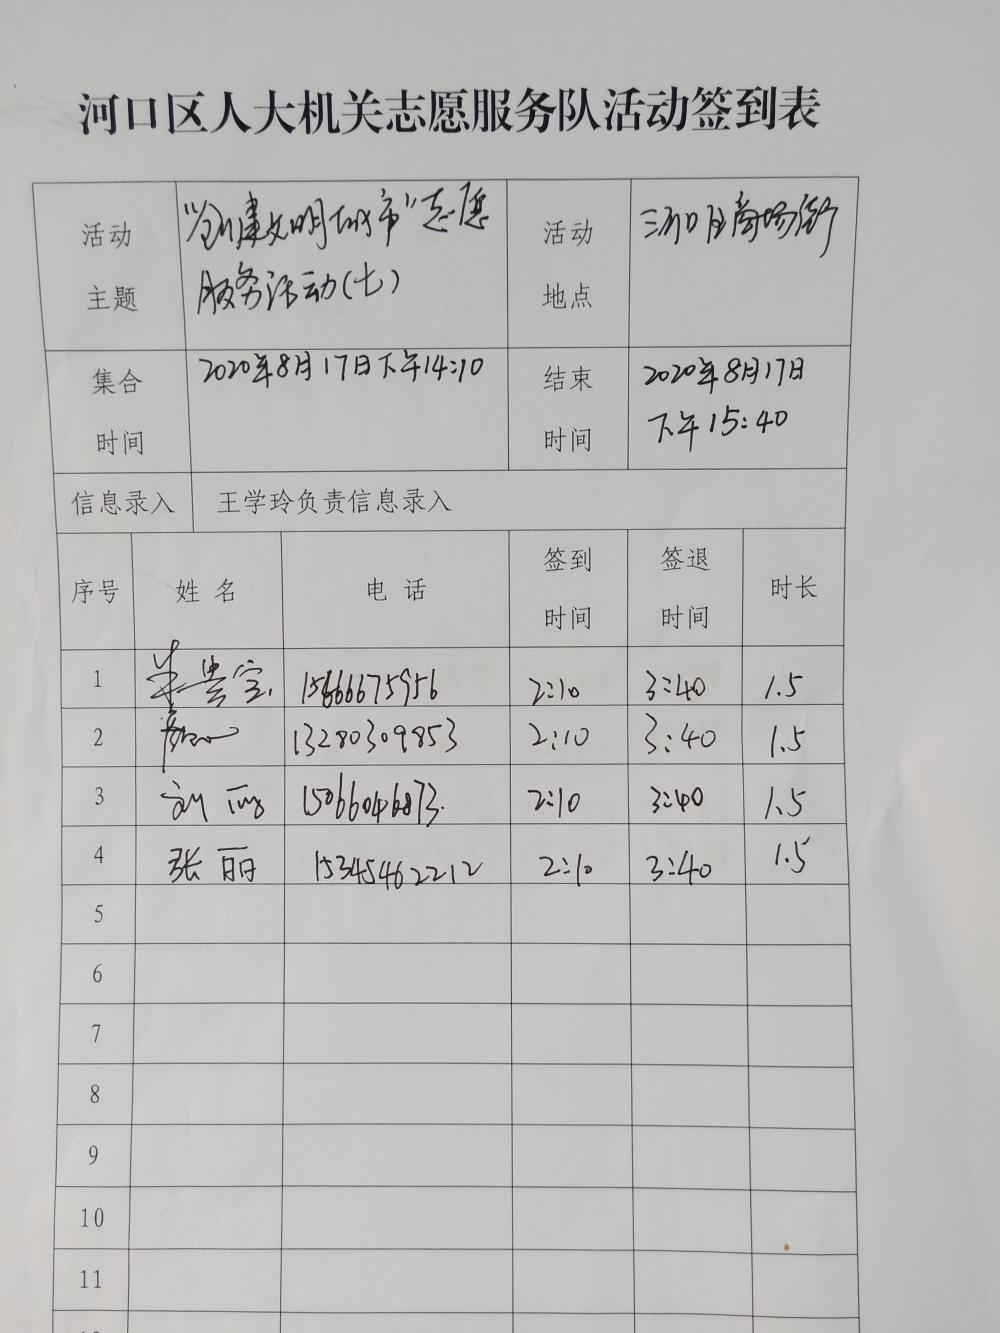 河口区人大机关志愿服务队活动签到表
活动主题
"创建文明城市"志愿服务活动(七)
活动地点
河口区商场街
集合时间
2020年8月17日下午14:10
结束时间
2020年8月17日下午15:40
信息录入 王学玲负责信息录入
序号 姓名 电话 签到时间 签退时间 时长
1 贵宝 15666675956 2:10 3:40 1.5
2 13280309853 2:10 3:40 1.5
3 刘丽 15066046873 2:10 3:40 1.5
4 张丽 15345462212 2:10 3:40 1.5
5
6
7
8
9
10
11